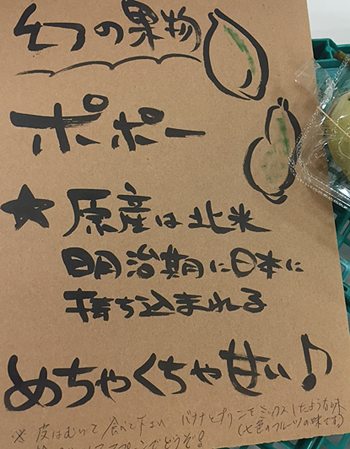 幻の果物
ポポー
★原産は北米
明治期に日本に
持ち込まれる
めちゃくちゃ甘い♪
※皮はむいて食べて下さい バナナとプリンをミックスしたような味
(七色のフルーツの味する)
スプーンでどうぞ!